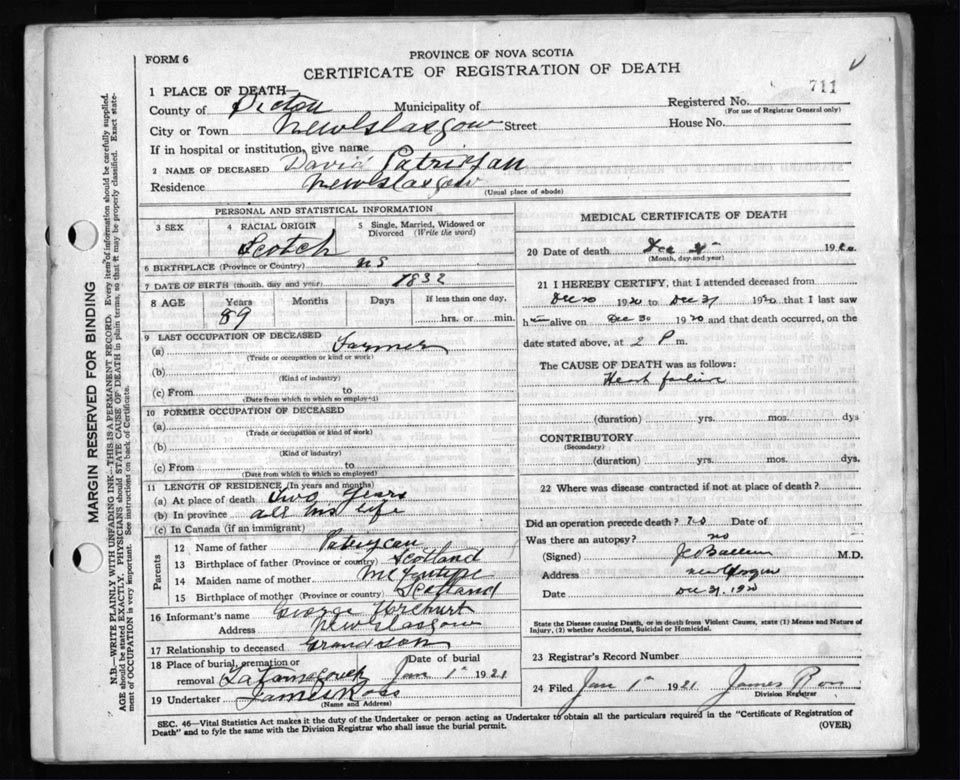 PROVINCE OF NOVA SCOTIA
FORM 6
CERTIFICATE OF REGISTRATION OF DEATH
711
1 PLACE OF DEATH—
County of Pictou Municipality of Registered No.
(For use of Registrar General only)
City or Town New Glasgow Street House No.
If in hospital or institution, give name
2 NAME OF DECEASED David
Residence New Glasgow
(Usual place of abode)
PERSONAL AND STATISTICAL INFORMATION
3 SEX 4 RACIAL ORIGIN 5 Single, Married, Widowed or Divorced (Write the word)
Scotch
6 BIRTHPLACE (Province or Country) N S
7 DATE OF BIRTH (month, day and year) 1832
8 AGE Years Months Days If less than one day,
89 hrs. or min.
9 LAST OCCUPATION OF DECEASED
(a) Farmer
(Trade or occupation or kind or work)
(b)
(Kind of industry)
(c) From to
(Date from which to which so employed)
10 FORMER OCCUPATION OF DECEASED
(a)
(Trade or occupation or kind of work)
(b)
(Kind of industry)
(c) From to
(Date from which to which so employed)
11 LENGTH OF RESIDENCE (In years and months)
(a) At place of death Two years
(b) In province all his life
(c) In Canada (if an immigrant)
Parents
12 Name of father
13 Birthplace of father (Province or country) Scotland
14 Maiden name of mother McIntyre
15 Birthplace of mother (Province or country) Scotland
16 Informant's name George
Address New Glasgow
17 Relationship to deceased Grandson
18 Place of burial, cremation or Date of burial
removal Jan 1st 1921
19 Undertaker James Ross
(Name and Address)
MEDICAL CERTIFICATE OF DEATH
20 Date of death Dec 192
(Month, day and year)
21 I HEREBY CERTIFY, that I attended deceased from
Dec 20 1920 to Dec 31 1920 that I last saw
him alive on Dec 30 1920 and that death occurred, on the
date stated above, at 2 P m.
The CAUSE OF DEATH was as follows:
Heart failure
(duration) yrs. mos. dys
CONTRIBUTORY
(Secondary)
(duration) yrs. mos. dys.
22 Where was disease contracted if not at place of death?
Did an operation precede death? no Date of
Was there an autopsy? no
(Signed) M.D.
Address New Glasgow
Date Dec 31, 1920
State the Disease causing Death, or in death from Violent Causes, state (1) Means and Nature of
Injury, (2) whether Accidental, Suicidal or Homicidal.
23 Registrar's Record Number
24 Filed Jan 1st 1921 James Ross
Division Registrar
SEC. 46—Vital Statistics Act makes it the duty of the Undertaker or person acting as Undertaker to obtain all the particulars required in the "Certificate of Registration of
Death" and to fyle the same with the Division Registrar who shall issue the burial permit. (OVER)
MARGIN RESERVED FOR BINDING
N.B.—WRITE PLAINLY WITH UNFADING INK—THIS IS A PERMANENT RECORD. Every item of information should be carefully supplied.
AGE should be stated EXACTLY. PHYSICIANS should STATE CAUSE OF DEATH in plain terms, so that it may be properly classified. Exact state-
ment of OCCUPATION is very important. See instructions on back of Certificate.